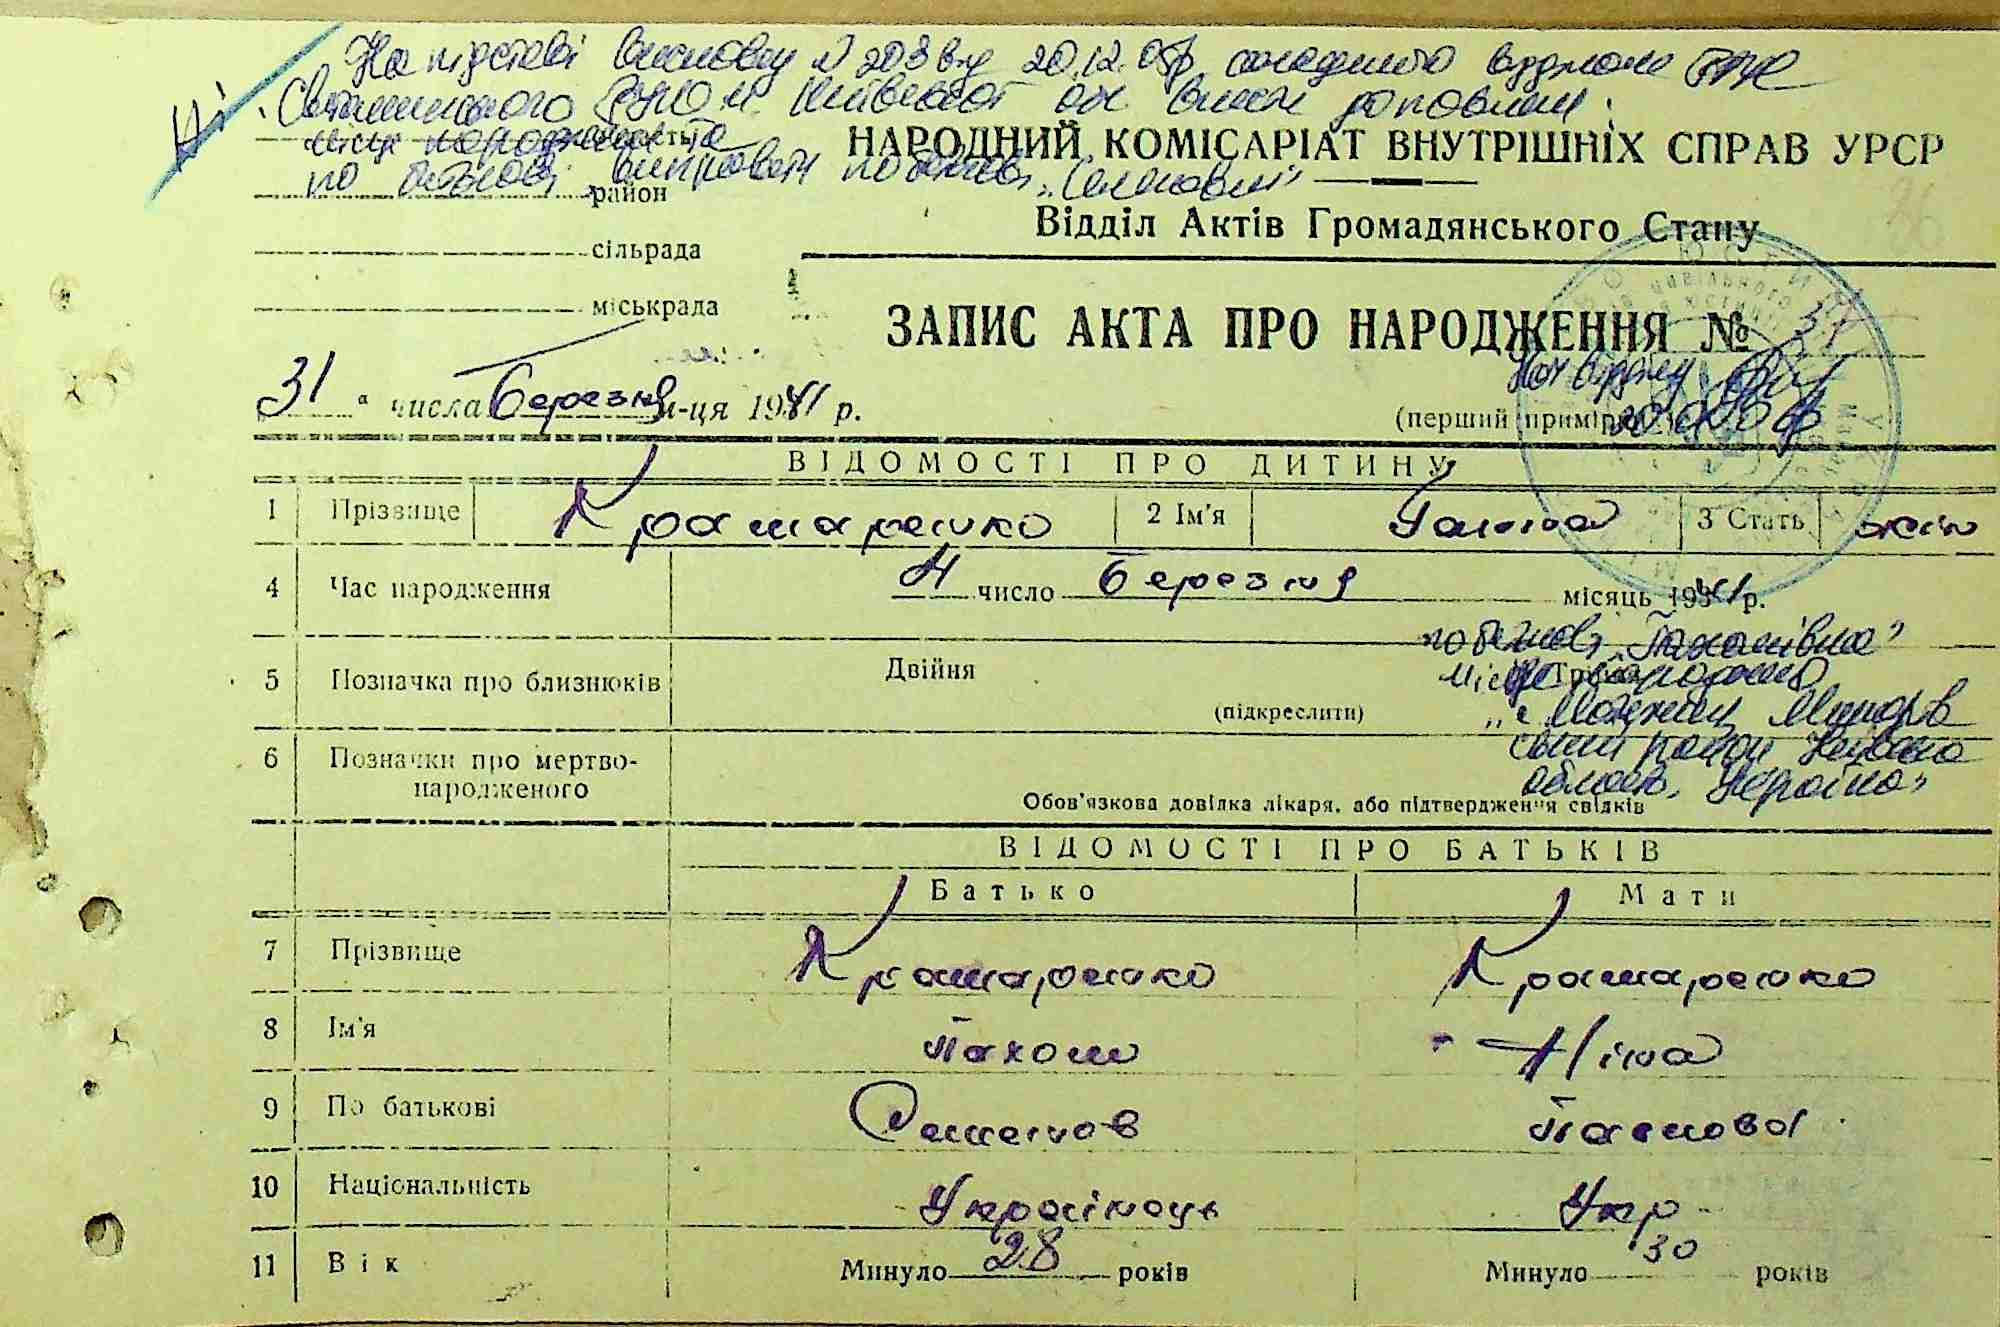 На підставі висновку № 208 від 20.12.05р складеного відділом РАЦС
Святошинського РУЮ м. Києва
місце народження та
по батькові виправити по батькові „Семенович"
НАРОДНИЙ КОМІСАРІАТ ВНУТРІШНІХ СПРАВ УРСР
район
Відділ Актів Громадянського Стану
сільрада
міськрада
ЗАПИС АКТА ПРО НАРОДЖЕННЯ № 37
Нач відділу
31 " числа Березня м-ця 1941 р.
(перший примірник)
ВІДОМОСТІ ПРО ДИТИНУ
1 Прізвище Крамаренко 2 Ім'я Галина 3 Стать жін
4 Час народження 4 число Березня місяць 1941 р.
по батькові „Пахомівна"
5 Позначка про близнюків Двійня Трійня
місце народження
(підкреслити)
„с Мотижин Макарів
ський район Київська
область, Україна"
6 Позначки про мертво-
народженого
Обов'язкова довідка лікаря, або підтвердження свідків
ВІДОМОСТІ ПРО БАТЬКІВ
Батько Мати
7 Прізвище Крамаренко Крамаренко
8 Ім'я Пахом Ніна
9 По батькові Семенов Павлова
10 Національність Українець Укр
11 Вік Минуло 28 років Минуло 30 років